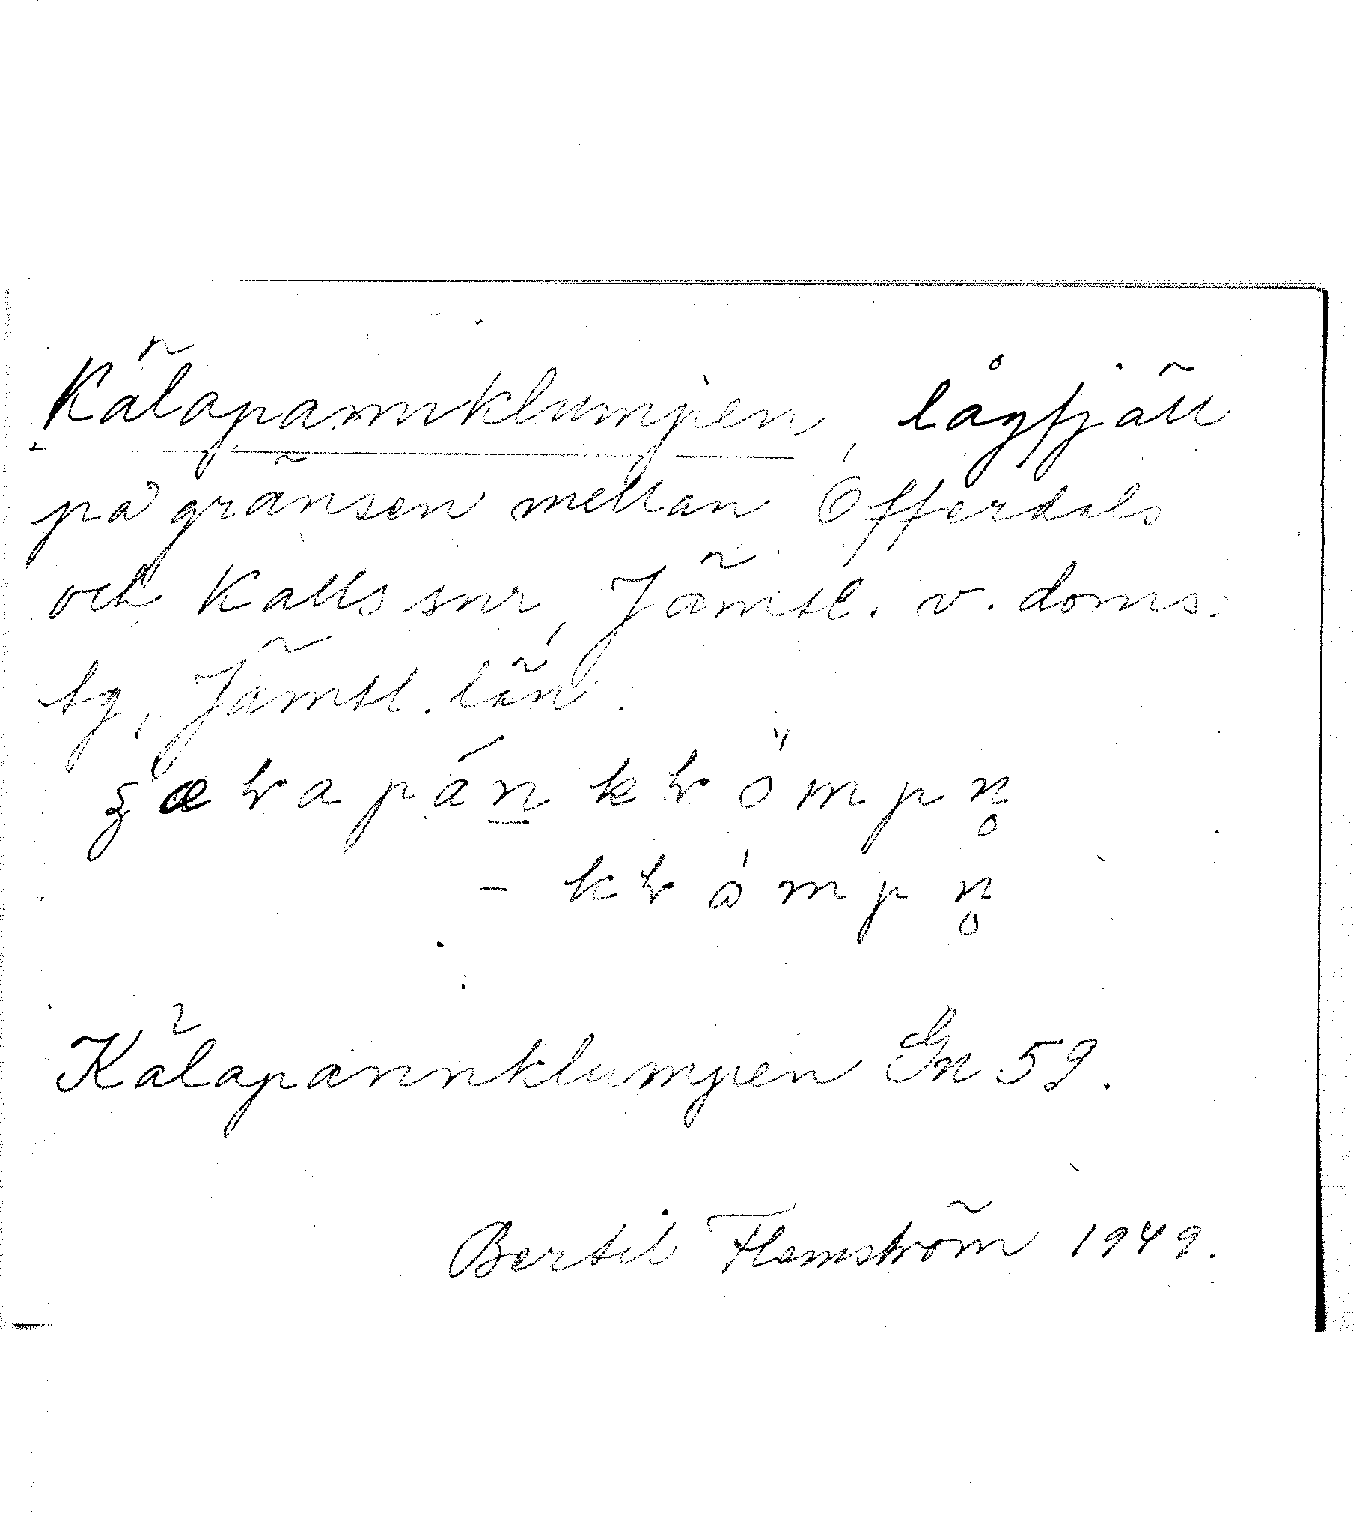 Kälapannklumpen, lågfjäll
på gränsen mellan Offerdals
och Kalls snr, Jämtl. v. doms.
tg, Jämtl. län.
Kälapannklumpen Gn 59.
Bertil Flemström 1949.